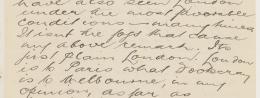 have also seen London
under the most favorable
conditions — many times
It isn't the fogs that cause
my above remark. Its
just plain London. London
is to Paris what Footscray
is to Melbourne, in my
opinion, as far as